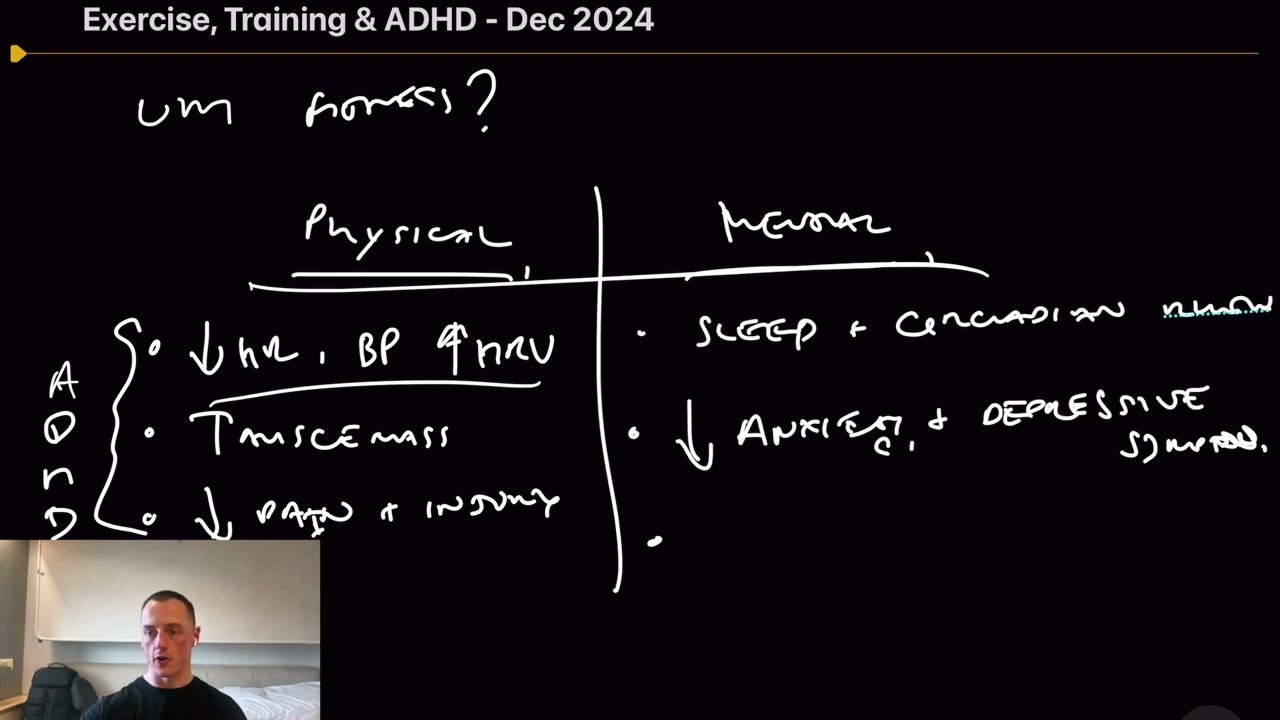 Exercise, Training & ADHD - Dec 2024
?
PHYSICAL
MENTAL
A
D
H
D
↓ HR, BP ↑ HRV
↑ MUSCLE MASS
↓ PAIN + INJURY
SLEEP + CIRCADIAN
↓ ANXIETY, + DEPRESSIVE
SYMPTOMS.